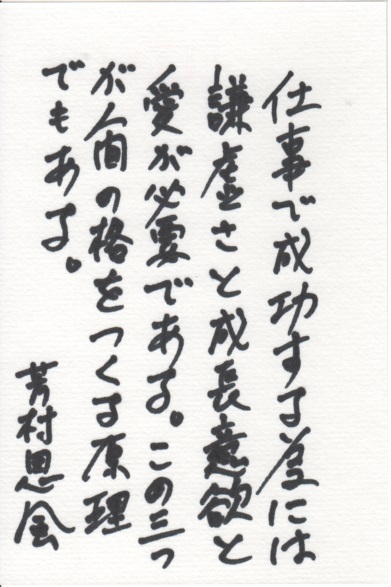 仕事で成功する為には
謙虚さと成長意欲と
愛が必要である。この三つ
が人間の格をつくる原理
でもある。
芳村思風